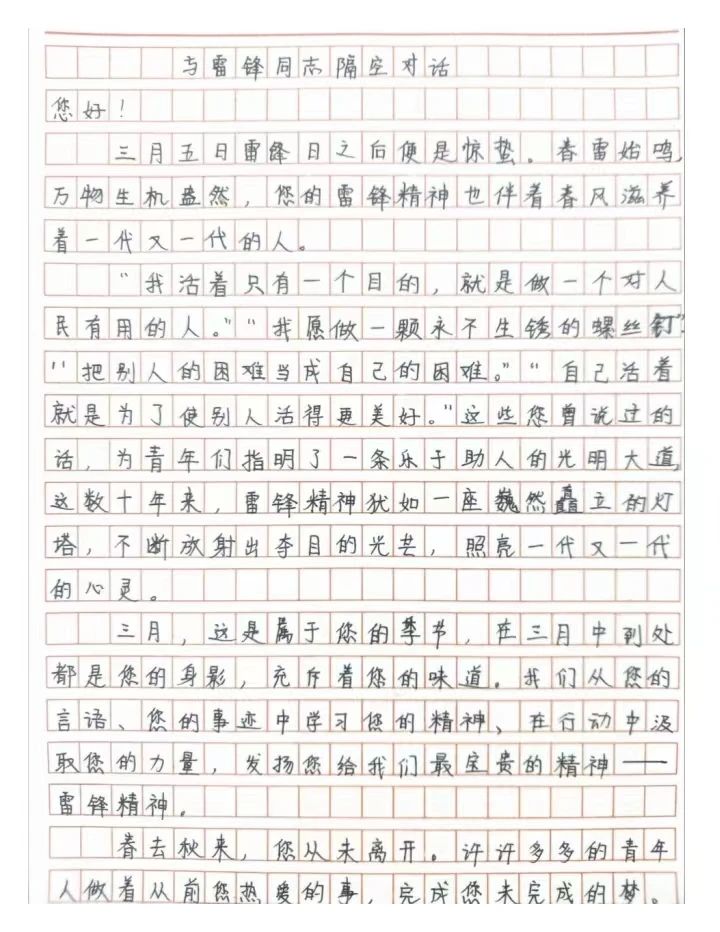 与雷锋同志隔空对话
您好！
三月五日雷锋日之后便是惊蛰。春雷始鸣，
万物生机盎然，您的雷锋精神也伴着春风滋养
着一代又一代的人。
“我活着只有一个目的，就是做一个对人
民有用的人。”“我愿做一颗永不生锈的螺丝钉”
“把别人的困难当成自己的困难。”“自己活着
就是为了使别人活得更美好。”这些您曾说过的
话，为青年们指明了一条乐于助人的光明大道，
这数十年来，雷锋精神犹如一座巍然矗立的灯
塔，不断放射出夺目的光芒，照亮一代又一代
的心灵。
三月，这是属于您的季节，在三月中到处
都是您的身影，充斥着您的味道。我们从您的
言语、您的事迹中学习您的精神、在行动中汲
取您的力量，发扬您给我们最宝贵的精神——
雷锋精神。
春去秋来，您从未离开。许许多多的青年
人做着从前您热爱的事，完成您未完成的梦。